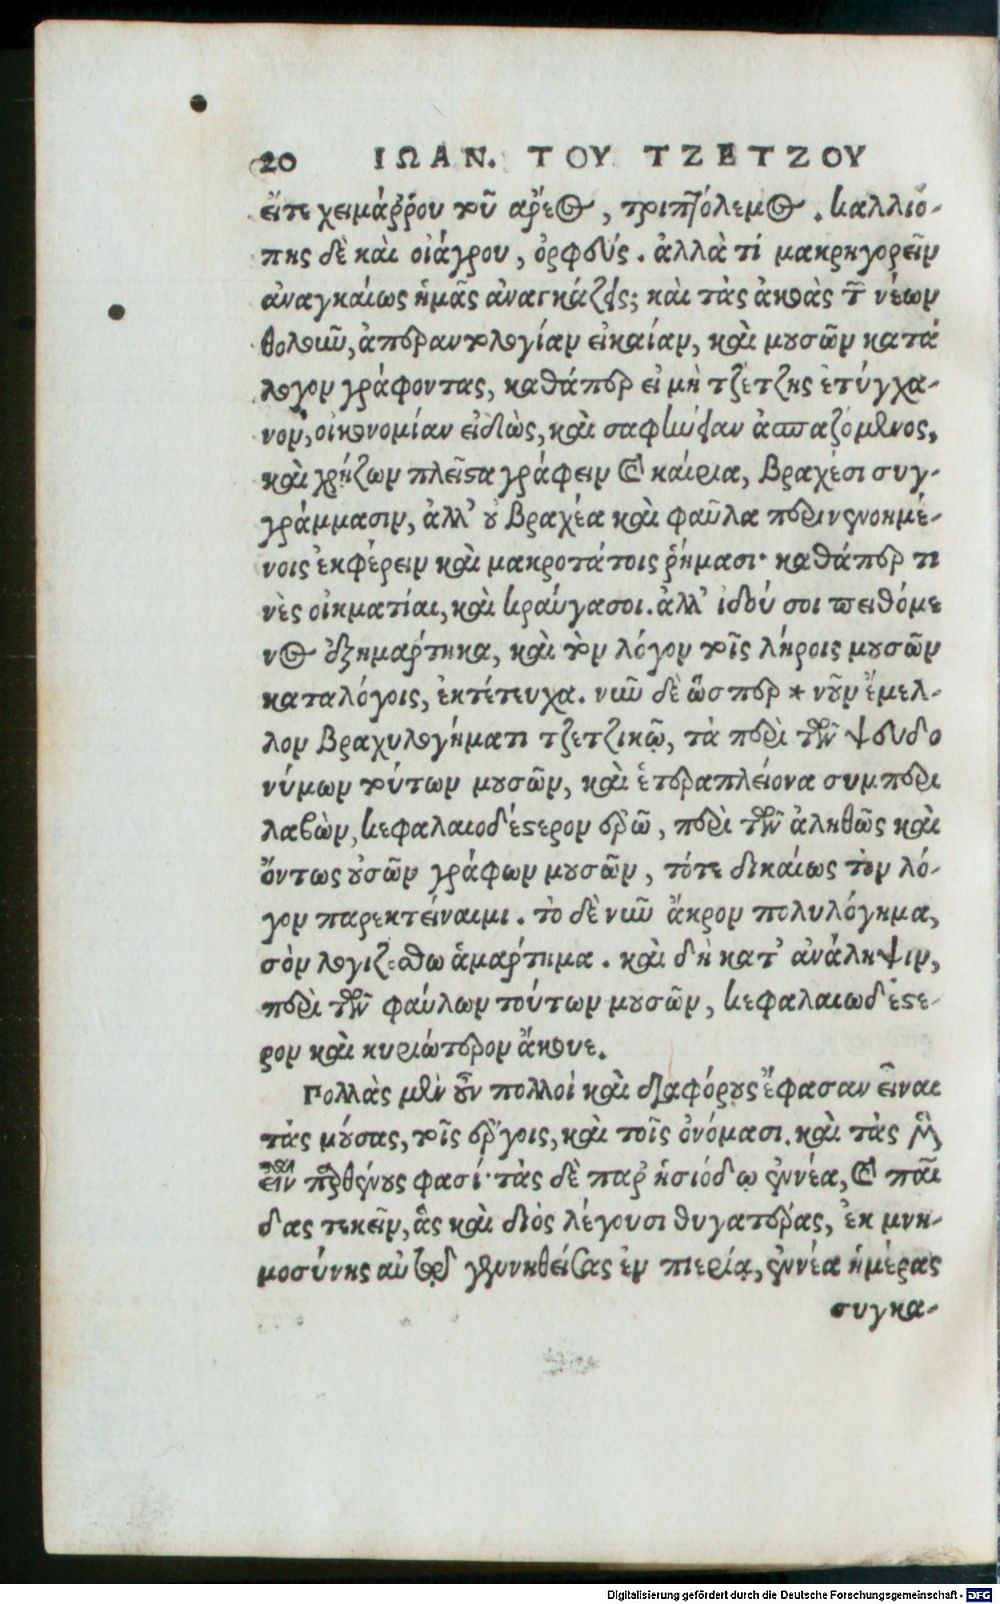 20 ΙΩΑΝ. ΤΟΥ ΤΖΕΤΖΟΥ
εἴτε χειμάῤῥου τοῦ ἄρεος, τριπτόλεμος. καλλιό-
πης δὲ καὶ οἰάγρου, ὀρφεύς. ἀλλὰ τί μακρηγορεῖν
ἀναγκαίως ἡμᾶς ἀναγκάζεις; καὶ τὰς ἀκοὰς τῶν νέων
θολοῦν, ἀπεραντολογίαν εἰκαίαν, καὶ μουσῶν κατά
λογον γράφοντας, καθάπερ εἰ μὴ τζέτζης ἐτύγχα-
νον, οἰκονομίαν εἰδὼς, καὶ σαφήνειαν ἀσπαζόμενος,
καὶ χρήζων πλεῖστα γράφειν καὶ καίρια, βραχέσι συγ-
γράμμασιν, ἀλλ' οὐ βραχέα καὶ φαῦλα περινενοημέ-
νοις ἐκφέρειν καὶ μακροτάτοις ῥήμασι· καθάπερ τι
νὲς οἰκματίαι, καὶ κραύγασοι. ἀλλ' ἰδού σοι πειθόμε
νος ἐξημάρτηκα, καὶ τὸν λόγον τοῖς λήροις μουσῶν
καταλόγοις, ἐκτέτευχα. νῦν δὲ ὥσπερ * νοῦν ἔμελ-
λον βραχυλογήματι τζετζικῷ, τὰ περὶ τῶν ψευδο
νύμων τούτων μουσῶν, καὶ ἕτερα πλείονα συμπερι
λαβὼν, κεφαλαιοδέστερον ἐρῶ, περὶ τῶν ἀληθῶς καὶ
ὄντως οὐσῶν γράφων μουσῶν, τότε δικαίως τὸν λό-
γον παρεκτείναιμι. τὸ δὲ νῦν ἄκρον πολυλόγημα,
σὸν λογιζέσθω ἁμάρτημα. καὶ δὴ κατ' ἀνάληψιν,
περὶ τῶν φαύλων τούτων μουσῶν, κεφαλαιωδέστε-
ρον καὶ κυριώτερον ἄκουε.
Πολλὰς μὲν οὖν πολλοὶ καὶ διαφόρους ἔφασαν εἶναι
τὰς μούσας, τοῖς ἔργοις, καὶ τοῖς ὀνόμασι. καὶ τὰς μὲν
εἶναι παρθένους φασί· τὰς δὲ παρ' ἡσιόδῳ ἐννέα, καὶ παῖ
δας τεκεῖν, ἃς καὶ διὸς λέγουσι θυγατέρας, ἐκ μνη-
μοσύνης αὐτῷ γεννηθείσας ἐν πιερίᾳ, ἐννέα ἡμέρας
συγκα-
Digitalisierung gefördert durch die Deutsche Forschungsgemeinschaft - DFG